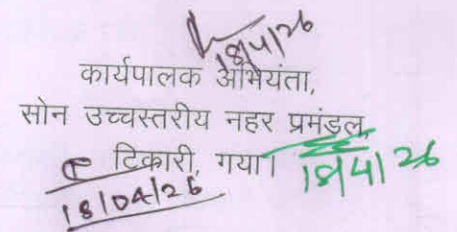 18/4/26
कार्यपालक अभियंता,
सोन उच्चस्तरीय नहर प्रमंडल,
टिकारी, गया।
18/4/26
18/04/26